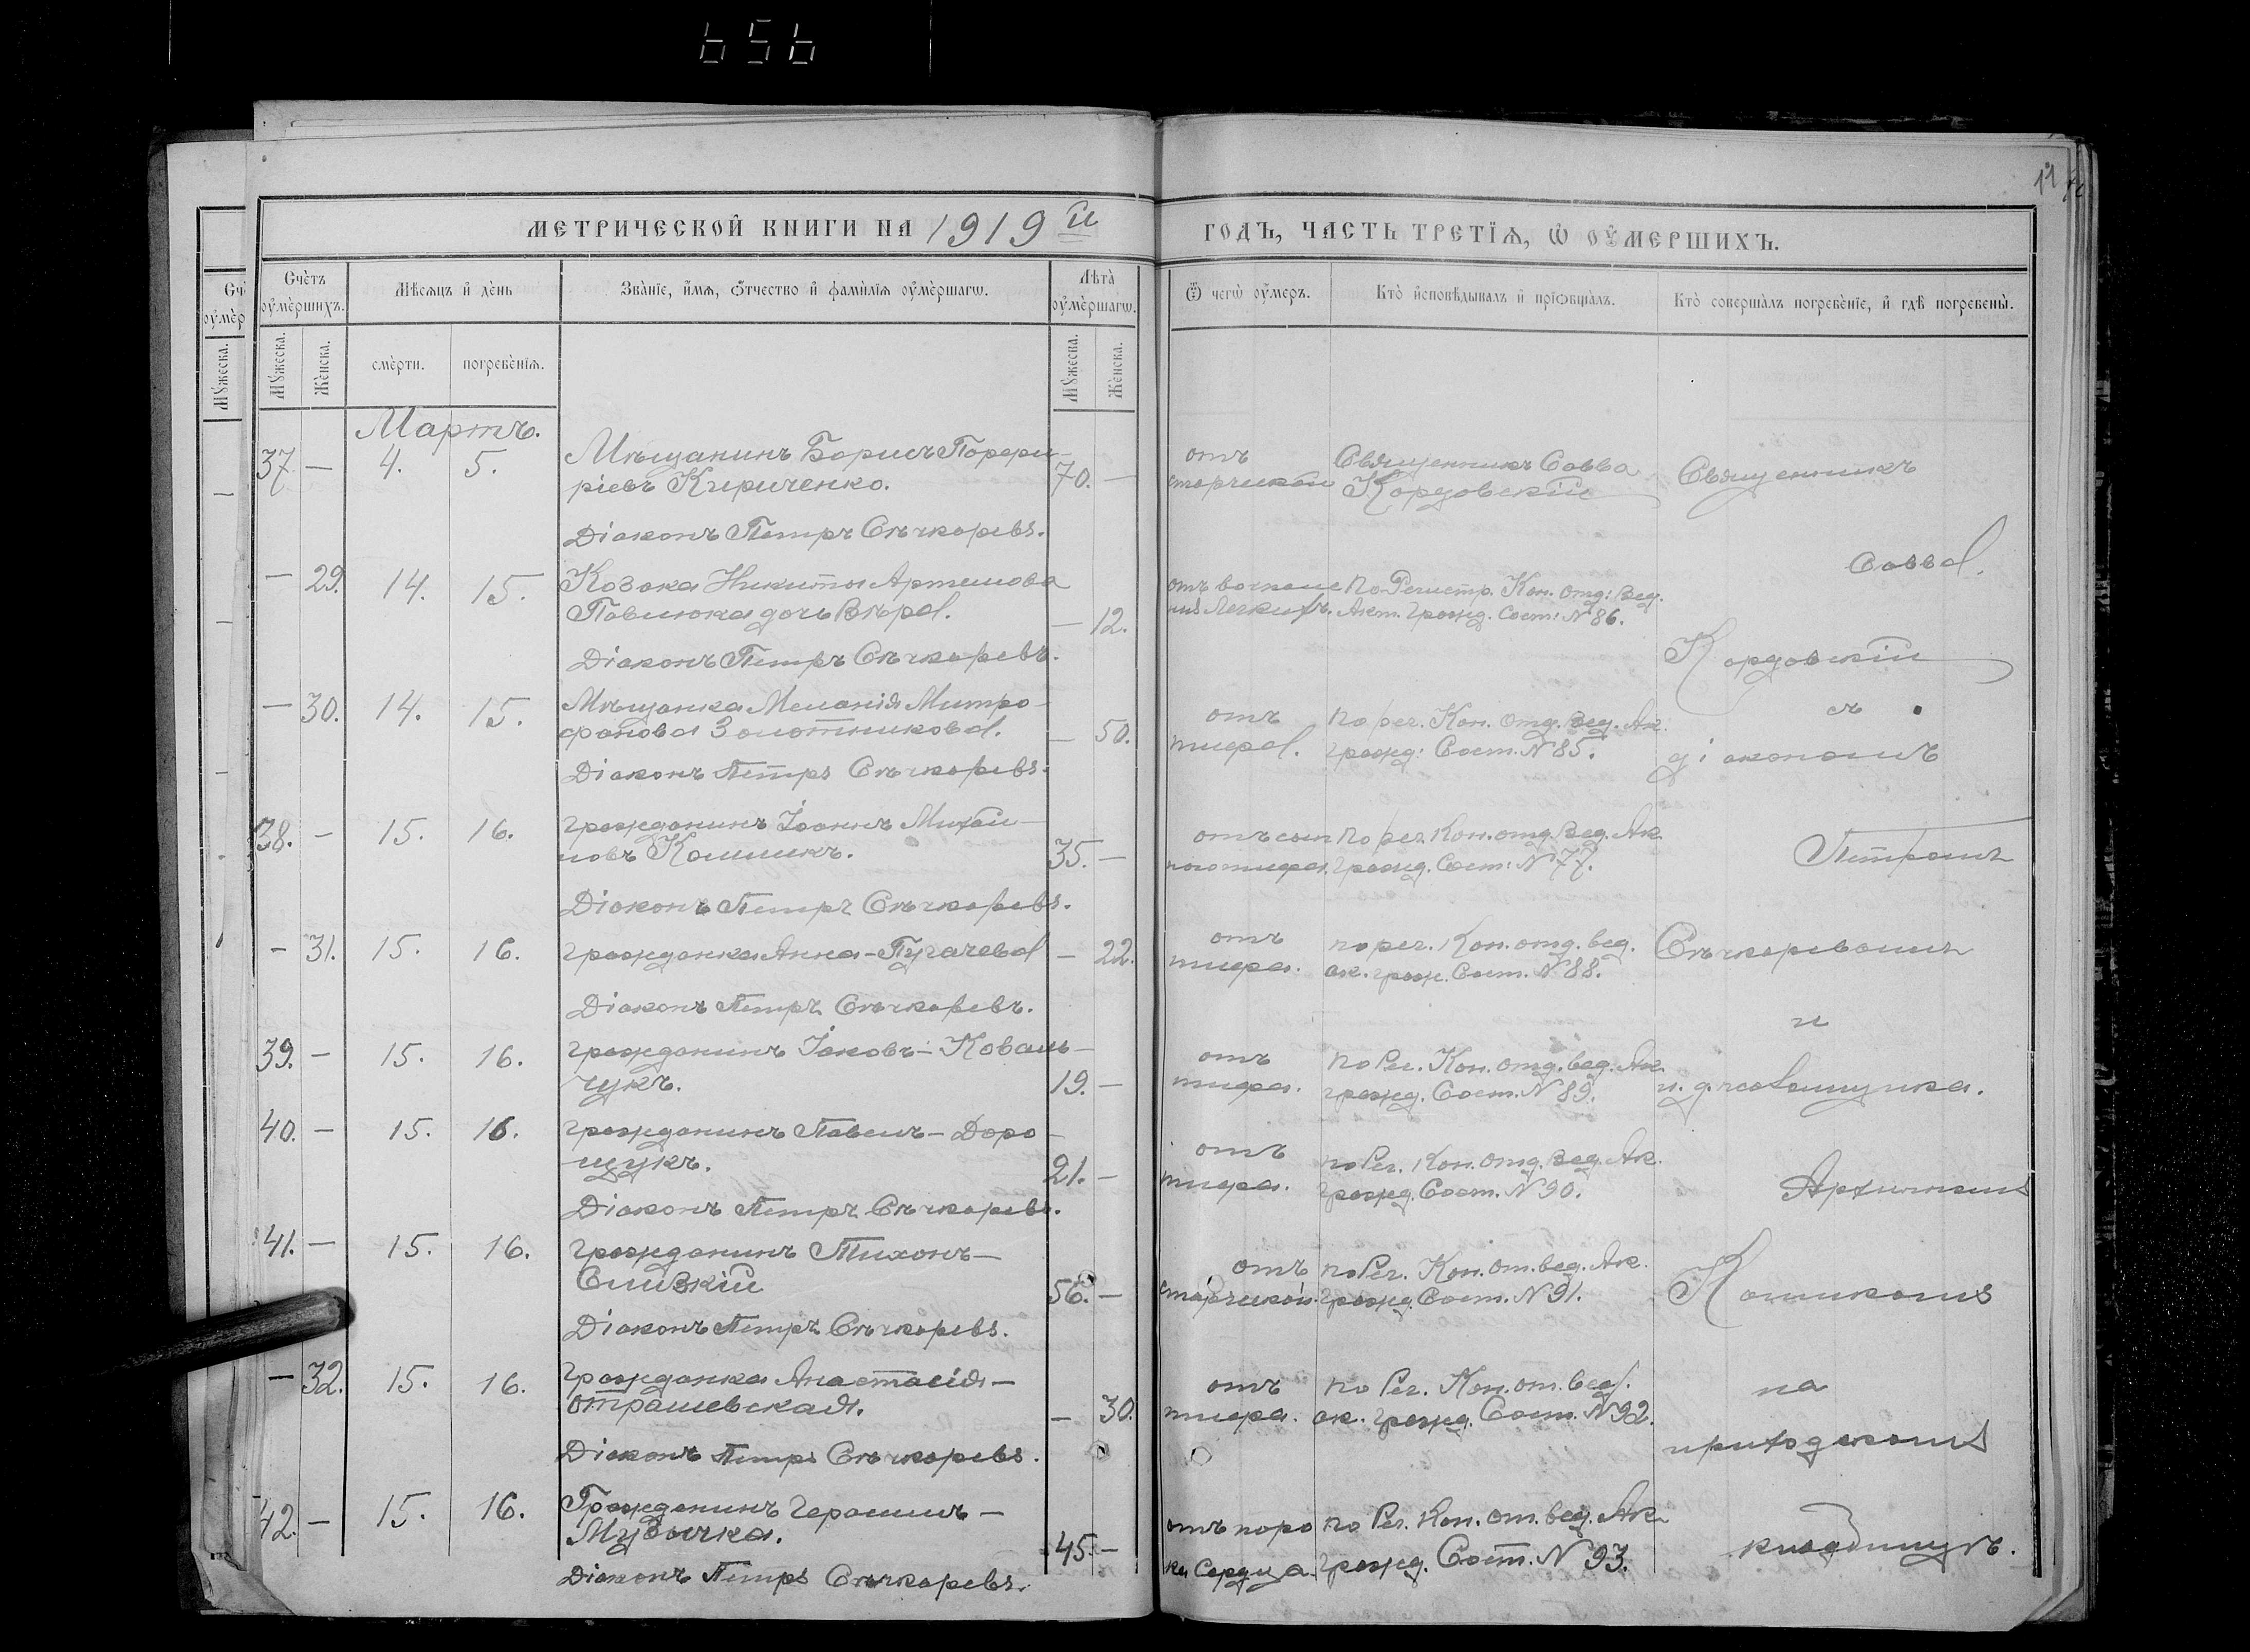 656
11
МЕТРИЧЕСКОЙ КНИГИ НА 1919й
ГОДЪ, ЧАСТЬ ТРЕТІѦ, Ѡ ОУМЕРШИХЪ.
Счетъ оумершихъ.
Мѣсяцъ и день
Званіе, имѧ, ѿчество и фамиліѧ оумершагѡ.
Лѣта оумершагѡ.
Ѿ чегѡ оумеръ.
Кто исповѣдывалъ и пріѡбщалъ.
Кто совершалъ погребеніе, и гдѣ погребены.
Мужеска.
Женска.
смерти.
погребеніѧ.
Мужеска.
Женска.
Мартъ.
37 — 4. 5. Мѣщанинъ Борисъ Порфи-
ріевъ Кириченко. 70. —
отъ старческой
Священникъ Савва
Кордовскій
Діаконъ Петръ Сѣчкаревъ.
— 29. 14. 15. Козака Никиты Артемова
Павлюка дочь Вѣра. — 12.
отъ воспале
нія легкихъ.
По Регистр. Кон. отд: Вед.
Акт. гражд. Сост: № 86.
Діаконъ Петръ Сѣчкаревъ.
— 30. 14. 15. Мѣщанка Меланія Митро-
фанова Золотникова. — 50.
отъ
тифа.
по рег. Кон. отд. Вед. Ак.
гражд: Сост. № 85.
Діаконъ Петръ Сѣчкаревъ.
38. — 15. 16. гражданинъ Іоаннъ Михай-
ловъ Колишкъ. 35. —
отъ сып
ного тифа.
по рег. Кон. отд. Вед. Ак.
гражд. Сост: № 77.
Діаконъ Петръ Сѣчкаревъ.
— 31. 15. 16. гражданка Анна - Пугачева — 22.
отъ
тифа.
по рег. Кон. отд. вед.
ак. граж. Сост. № 88.
Діаконъ Петръ Сѣчкаревъ.
39. — 15. 16. гражданинъ Іаковъ - Коваль-
чукъ. 19. —
отъ
тифа.
по Рег. Кон. отд. вед. Ак.
гражд. Сост. № 89.
40. — 15. 16. гражданинъ Павелъ - Доро-
щукъ. 21. —
отъ
тифа.
по Рег. Кон. отд. Вед. Ак.
гражд. Сост. № 90.
Діаконъ Петръ Сѣчкаревъ.
41. — 15. 16. гражданинъ Тихонъ -
Сливкій 56. —
отъ
старческой.
по Рег. Кон. от. вед. Ак.
гражд. Сост. № 91.
Діаконъ Петръ Сѣчкаревъ.
— 32. 15. 16. гражданка Анастасія -
Отрашевская. — 30.
отъ
тифа.
по Рег. Кон. от. вед.
ак. гражд. Сост. № 92.
Діаконъ Петръ Сѣчкаревъ.
42. — 15. 16. Гражданинъ Герасимъ -
Музычка. 45. —
отъ поро
ка Сердца.
по Рег. Кон. от. вед. Ак.
гражд. Сост. № 93.
Діаконъ Петръ Сѣчкаревъ.
Священникъ
Савва
Кордовскій
съ
діакономъ
Петромъ
Сѣчкаревымъ
и
и. д. псаломщика.
Кошикомъ
на
приходскомъ
кладбищѣ.